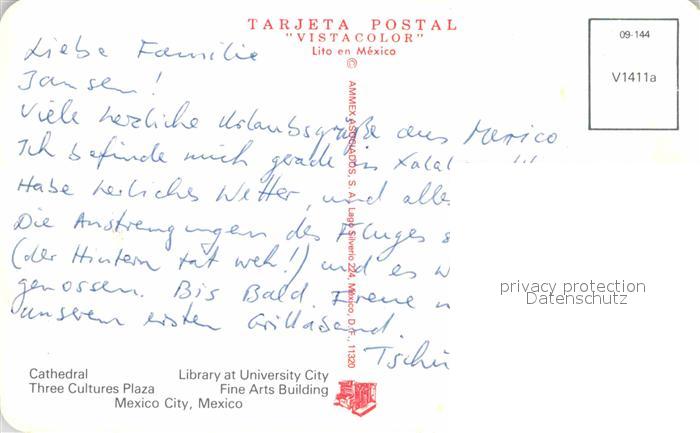 TARJETA POSTAL
"VISTACOLOR"
Lito en México
09-144
V1411a
Liebe Familie
Jansen!
Viele herzliche Urlaubsgrüße aus Mexico
Ich befinde mich gerade in
Habe herliches Wetter, und alles
Die Anstrengungen des Fluges s
(der Hintern tat weh!) und es w
genossen. Bis Bald. Freue
unserem ersten Grillabend
© AMMEX ASOCIADOS, S. A. Lago Silverio 224, México, D. F., 11320
privacy protection
Datenschutz
Cathedral
Three Cultures Plaza
Library at University City
Fine Arts Building
Mexico City, Mexico